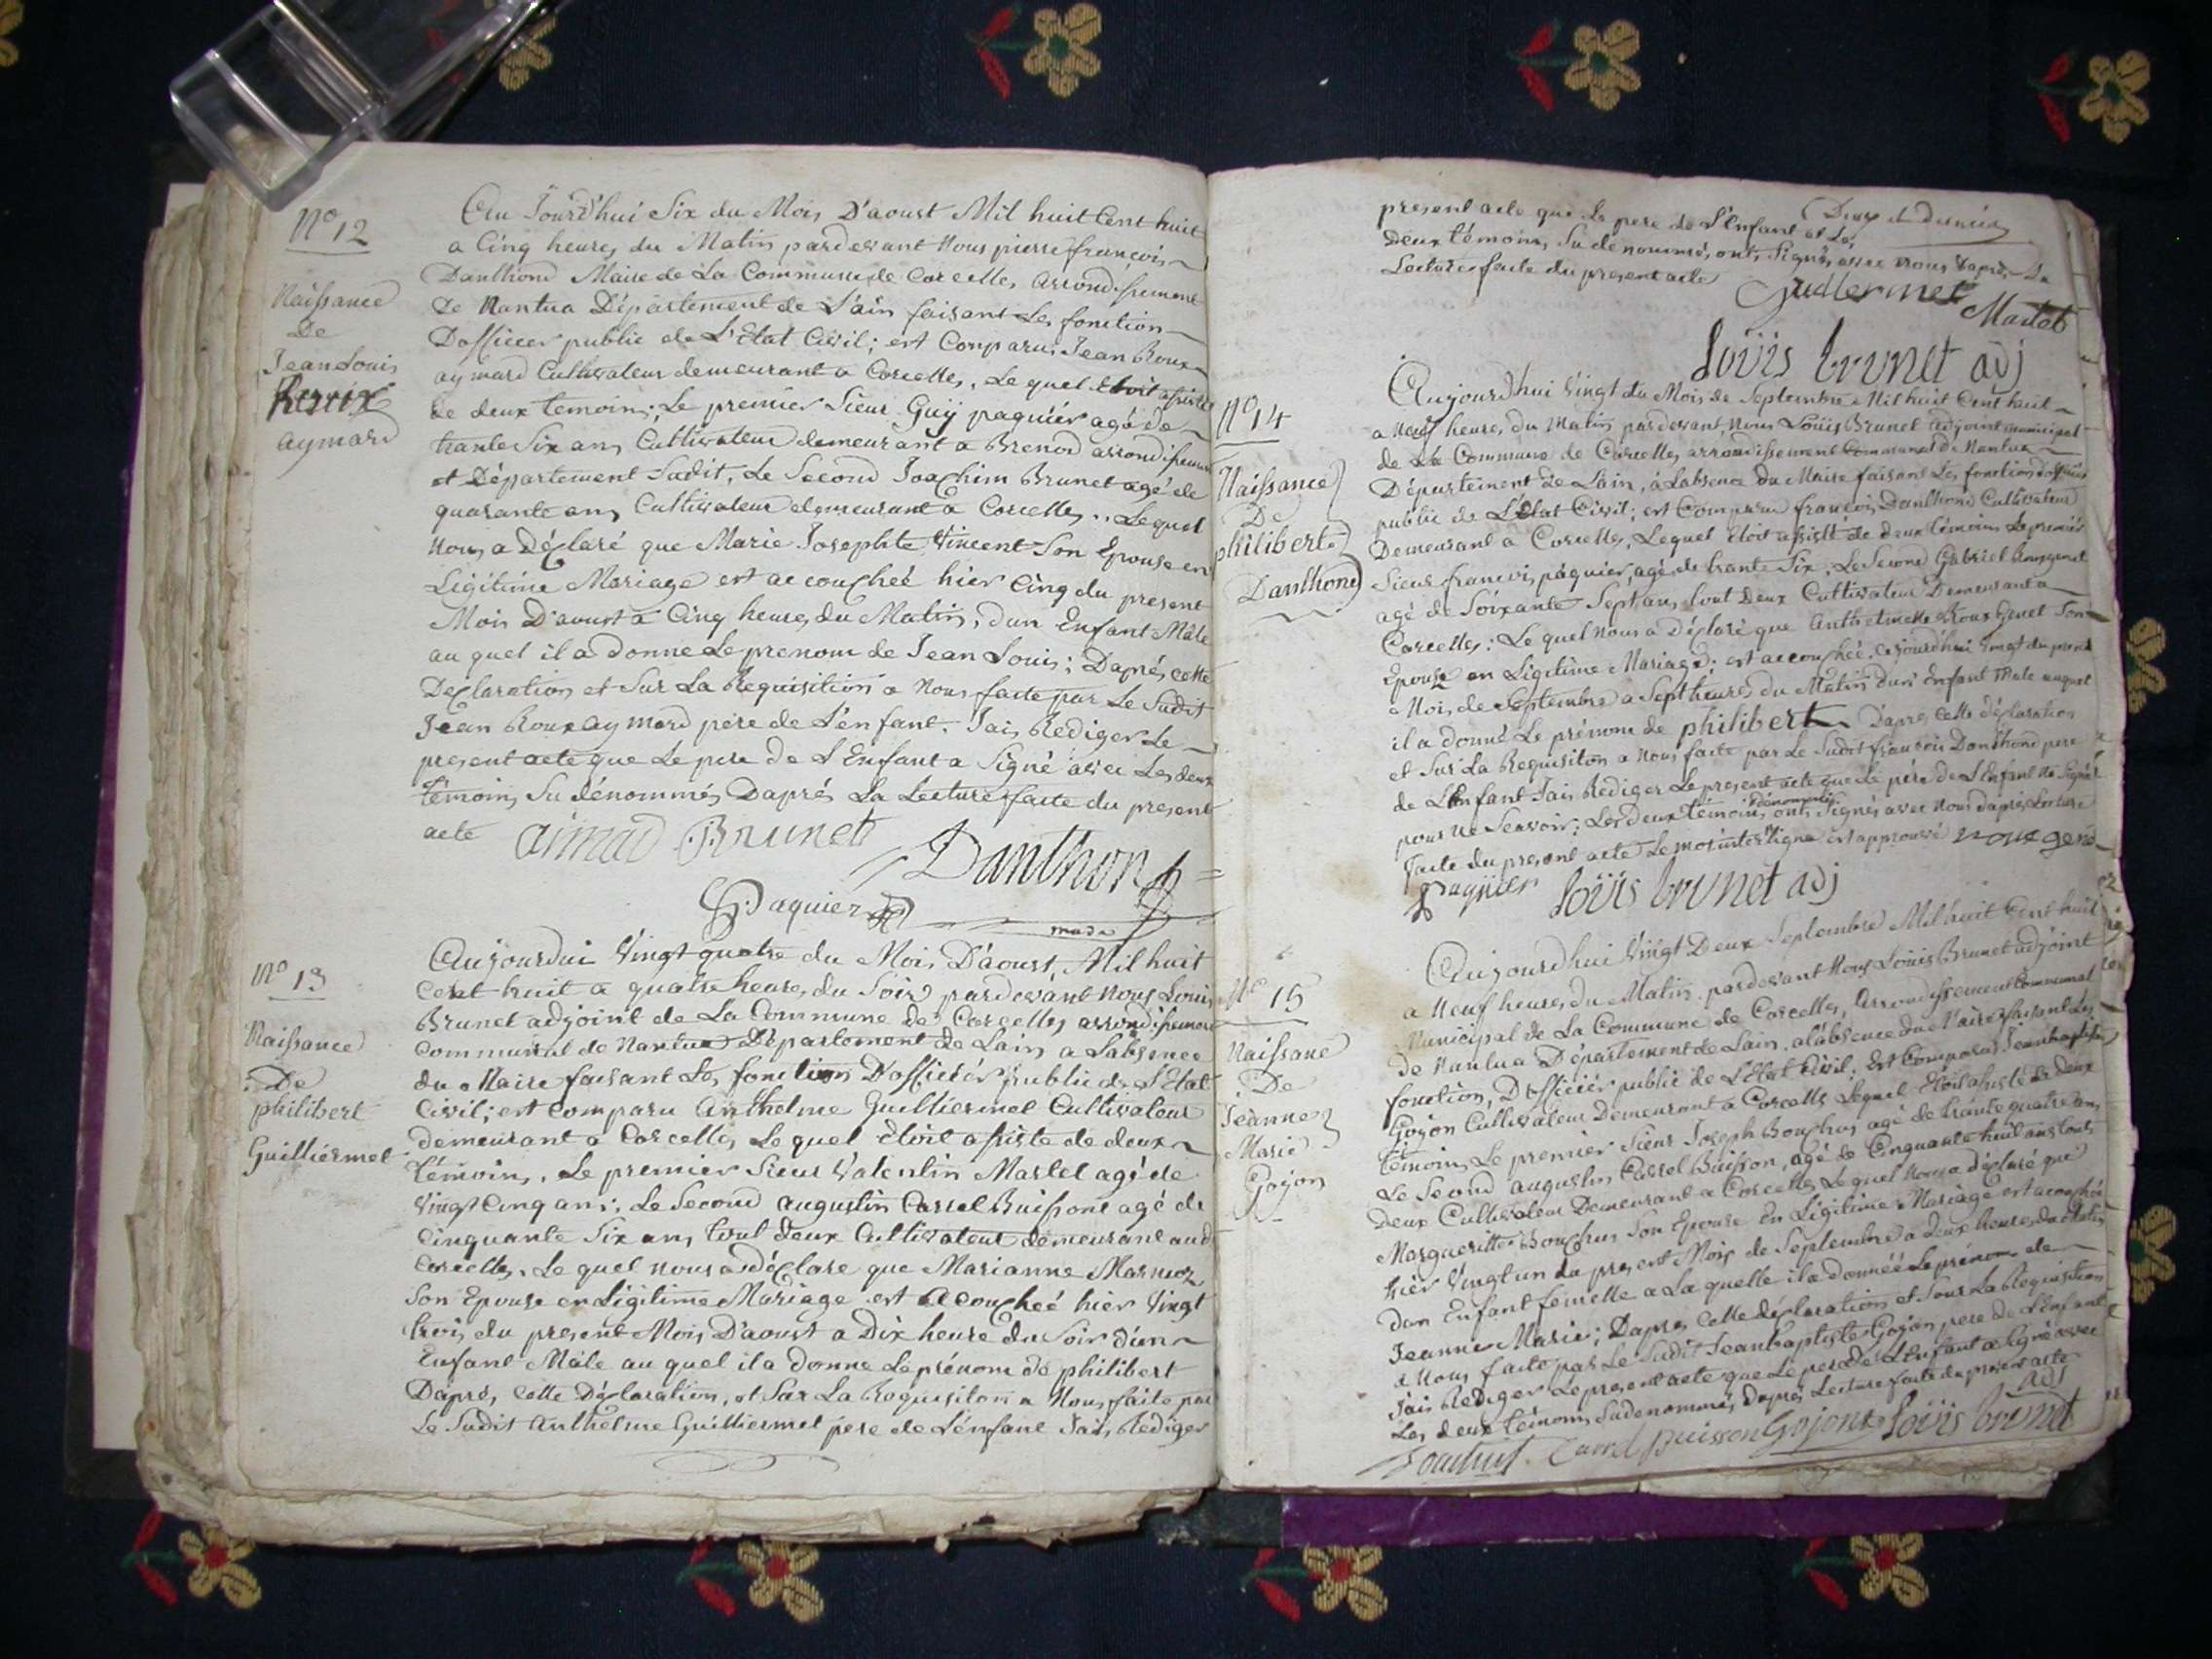 N° 12
Naissance
De
Jean Louis
aymard
Au Jourd'hui Six du Mois D'aoust Mil huit Cent huit
a Cinq heures du Matin pardevant Nous pierre françois
Danthond Maire de La Commune de Corcelles arrondissement
de Nantua Département de L'ain faisant Les fonction
Dofficier public de L'Etat Civil; est Comparus Jean Roux
aymard Cultivateur demeurant a Corcelles, Le quel Etoit assisté
de deux temoins; Le premier Sieur Guÿ paquiér agé de
trante Six ans Cultivateur demeurant a Brenod arrondissement
et Département Sudit, Le Second Joachim Brunet agé de
quarante ans Cultivateur demeurant a Corcelles.. Lequel
Nous a Déclaré que Marie Josephte Vincent Son Epouse en
Légitime Mariage est accouchée hier Cinq du present
Mois D'aoust a Cinq heures du Matin, dun Enfant Mâle
au quel il a donne Le prenom de Jean Louis; Daprés cette
Declaration et Sur La Requisition a Nous faite par Le Sudit
Jean Roux aymard pére de L'enfant. Jais Rediger Le
present acte que Le pere de L'Enfant a Signé avec Les deux
témoins Su dénommés Daprés La Lecture faite du present
acte aimad Brunet
Danthon
Paquier
N° 13
Naissance
De
philibert
Guilliermet
Aujourdui Vingt quatre du Mois D'aoust, Mil huit
Cent huit a quatre heures du Soir pardevant Nous Louis
Brunet adjoint de La Commune de Corcelles arrondissement
Communal de Nantua Département de Lain a Labsence
du Maire faisant Les fonction D'officiér public de L'Etat
Civil; est Comparu Anthelme Guilliermet Cultivateur
demeurant a Corcelles Le quel étoit assiste de deux
témoins, Le premier Sieur Valentin Martel agé de
Vingt Cinq ans; Le Second augustin Carrel Buissont agé de
Cinquante Six ans tout deux Cultivateur demeurant aud
Corcelles. Le quel nous a déclare que Marianne
Son Epouse en Légitime Mariage est acouchée hier Vingt
trois du present Mois D'aoust a Dix heure du Soir d'un
Enfant Mâle au quel il a donne Le prénom de philibert
Daprés cette Déclaration, et Sur La Requisiton a Nous faite par
Le Sudit Anthelme Guilliermet pére de L'énfant Jais Rediger
present acte que Le pere de L'Enfant et Les
Deux témoins Su dénommés, ont Signés avec nous daprés La
Lecture faite du present acte
Guillermet
Martel
Loüis brunet adj
N° 14
Naissance
De
philibert
Danthond
Aujourdhui Vingt du Mois de Septembre Mil huit Cent huit
a Neuf heures du Matin pardevant Nous Loüis Brunet adjoint municipal
de La Commune de Corcelles arrondissement Communal de Nantua
Département de Lain, à Labsence du Maire faisant Les fonction dofficier
public de L'Etat Civil; est Comparu françois Danthond Cultivateur
Demeurant a Corcelles, Lequel étoit assisté de deux témoins Le premiér
Sieur françois paquier, agé de trante Six; Le Second Gabriel
agé de Soixante Sept ans, tout Deux Cultivateur Demeurant a
Corcelles: Le quel Nous a Déclaré que Anthelmette Roux Genet Son
Epouse en Légitime Mariage; est accouchée. cejourdhui Vingt du present
Mois de Septembre a Sept heures du Matin dun Enfant Mâle auquel
il a donné Le prénom de philibert Daprés cette déclaration
et Sur La Requisiton a Nous faite par Le Sudit françois Danthond pere
de L'Enfant Jais Rediger Le present acte que Le pére de L'Enfant Na Signé
pour ne Scavoir; Les deux témoins dénommés ont Signés avec Nous daprés Lecture
faite du present acte Le mot interligne est approuvé
Paquier Loüis brunet adj
N° 15
Naissane
De
Jeanne
Marie
Gojon
Aujourdhui Vingt Deux Septembre Mil huit Cent huit
a Neuf heures du Matin pardevant Nous Loüis Brunet adjoint
Municipal de La Commune de Corcelles, Arrondissement Communal
de Nantua Département de Lain, a Labsence du Maire faisant Les
fonction, D'officiér public de L'Etat Civil; Est Comparus Jeanbaptiste
Gojon Cultivateur Demeurant a Corcelles Lequel Etoit assisté de deux
témoins Le premier Sieur Joseph Bouchus agé de trante quatre ans
Le Second augustin Carrel Buisson, agé de Cinquante huit ans tout
deux Cultivateur Demeurant a Corcelles Lequel Nous a déclaré que
Margueritte Bouchus Son Epouse En Légitime Mariage est acouchée
hiér Vingt un du present Mois de Septembre a deux heures du Matin
dun Enfant femelle a La quelle il a donnéé Le prénom de
Jeanne Marie; Daprés cette déclaration et Sur La Requisition
a Nous faite par Le Sudit Jeanbaptiste Gojon pere de L'Enfant
Jais Rediger Le present acte que Le pere de L'Enfant a Signé avec
Les deux témoins Sudenommés, daprés Lecture faite du present acte
Carrel buisson Gojon Loüis brunet adj